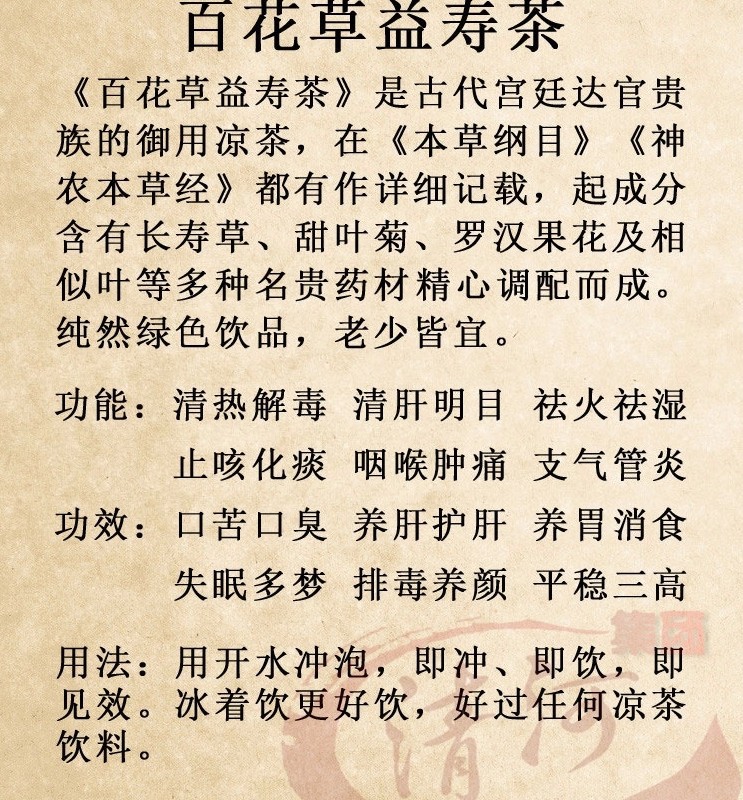 百花草益寿茶
《百花草益寿茶》是古代宫廷达官贵
族的御用凉茶，在《本草纲目》《神
农本草经》都有作详细记载，起成分
含有长寿草、甜叶菊、罗汉果花及相
似叶等多种名贵药材精心调配而成。
纯然绿色饮品，老少皆宜。
功能：清热解毒 清肝明目 祛火祛湿
止咳化痰 咽喉肿痛 支气管炎
功效：口苦口臭 养肝护肝 养胃消食
失眠多梦 排毒养颜 平稳三高
用法：用开水冲泡，即冲、即饮，即
见效。冰着饮更好饮，好过任何凉茶
饮料。
清河